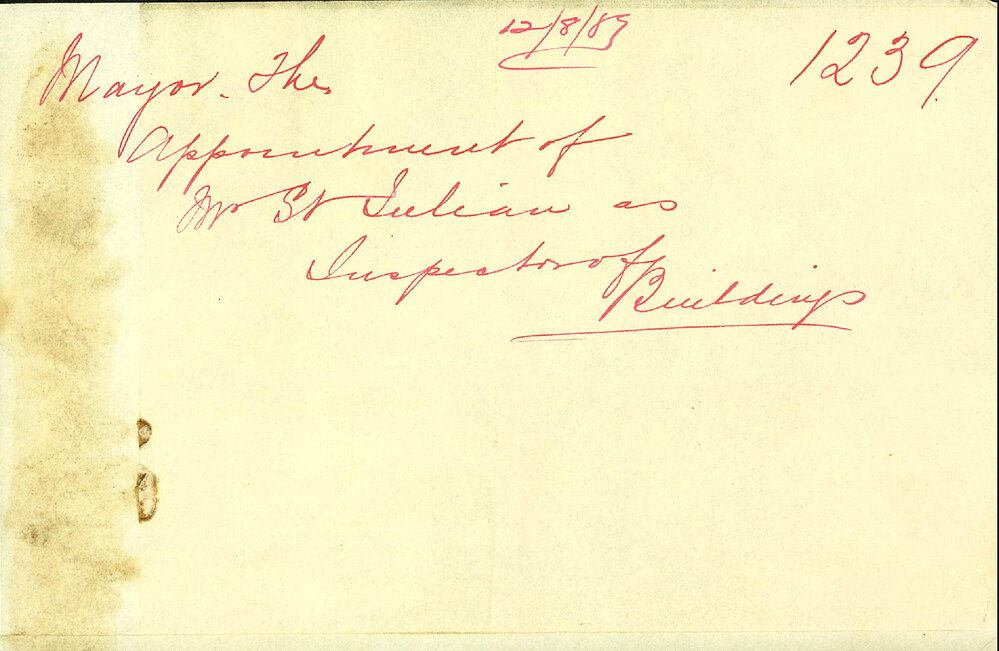 12/8/89
1239.
Mayor. The
Appointment of
Mr St Julian as
Inspector of
Buildings